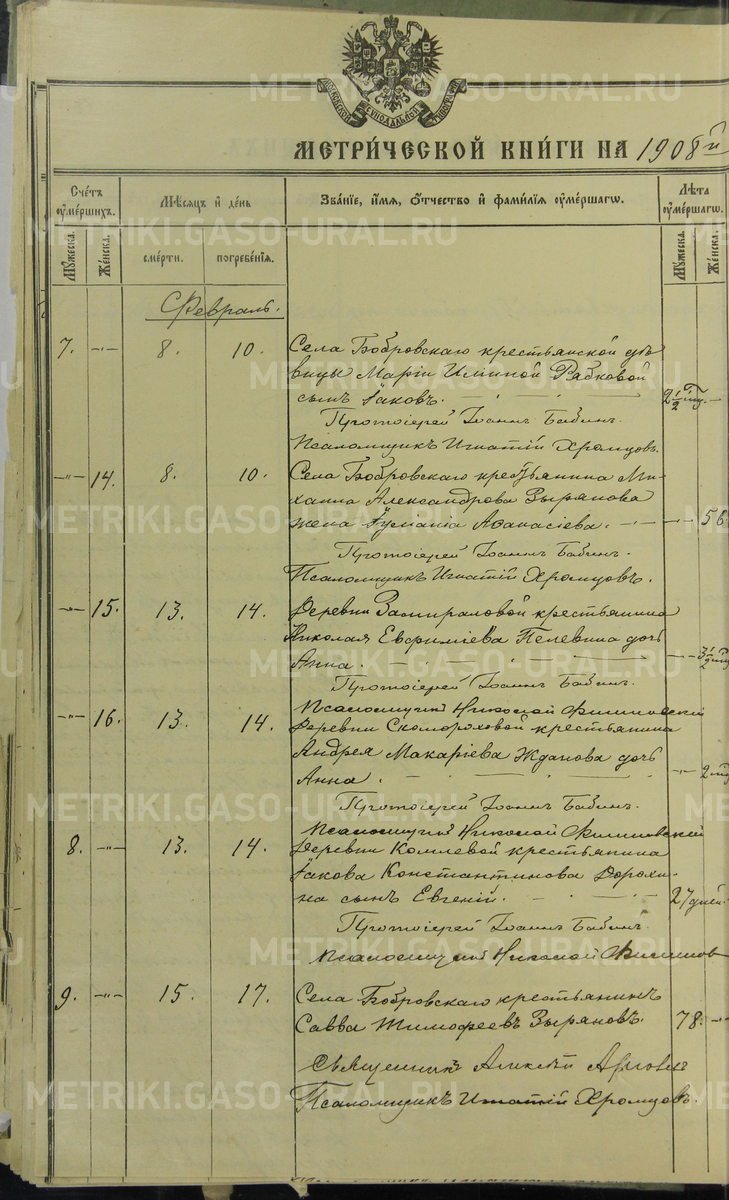 МЕТРИ́ЧЕСКОЙ КНИ́ГИ НА 1908й
Счётъ оумершихъ.
Мѣсяцъ и день
Зва́нїе, и́мя, ѻ҆́тчество и҆ фами́лїя оуме́ршагѡ.
Лѣта оуме́ршагѡ.
Мꙋжеска.
Же́нска.
сме́рти.
погребе́нїя.
Мꙋжеска.
Же́нска.
Февраль.
7. -"- 8. 10. Села Бобровскаго крестьянской дѣ
вицы Маріи Рябковой
сынъ Іаковъ. 2 1/2
Протоіерей Іоаннъ Бабинъ.
Псаломщикъ Игнатій Хромцовъ.
-"- 14. 8. 10. Села Бобровскаго крестьянина Ми-
хаила Александрова Зырянова
жена Іуліанія Аѳанасіева. -"- 56
Протоіерей Іоаннъ Бабинъ.
Псаломщикъ Игнатій Хромцовъ.
-"- 15. 13. 14. Деревни крестьянина
Николая Евфиміева Пелевина дочь
Анна. -"- 3 1/2
Протоіерей Іоаннъ Бабинъ.
Псаломщикъ Николай
-"- 16. 13. 14. Деревни Скомороховой крестьянина
Андрея Макаріева Жданова дочь
Анна. -"- 2
Протоіерей Іоаннъ Бабинъ.
Псаломщикъ Николай
8. -"- 13. 14. Деревни Комлевой крестьянина
Іакова Константинова Дорохи-
на сынъ Евгеній. 27 дней.
Протоіерей Іоаннъ Бабинъ.
Псаломщикъ Николай
9. -"- 15. 17. Села Бобровскаго крестьянинъ
Савва Тимофеевъ Зыряновъ. 78. -"-
Священникъ Алексій
Псаломщикъ Игнатій Хромцовъ.
METRIKI.GASO-URAL.RU